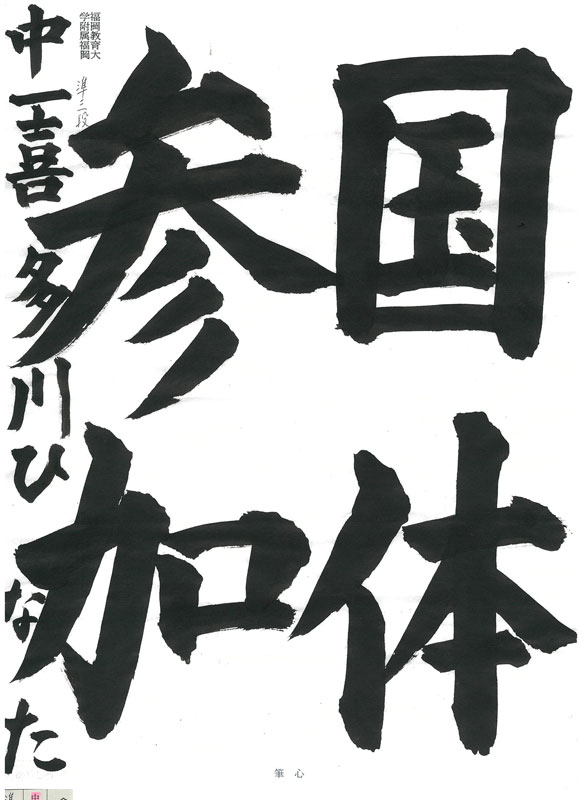 国体
参加
福岡教育大
学附属福岡
準二段
中一喜多川ひなた
心筆
準
中